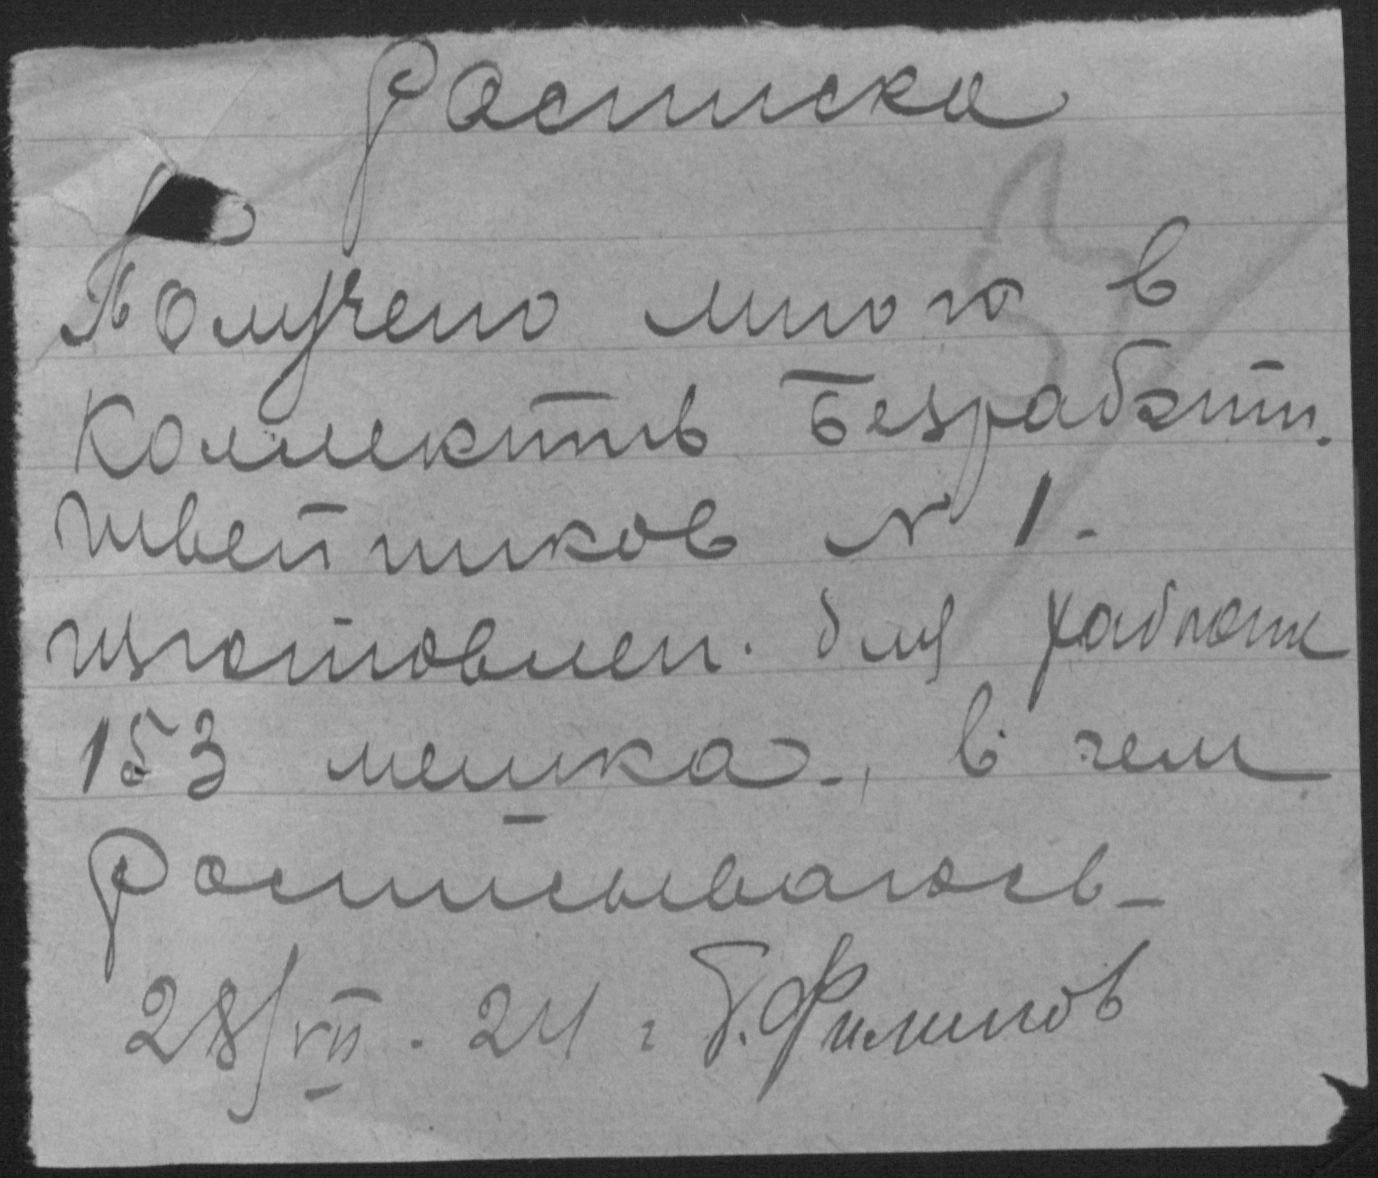 Росписка
Получено мною в
Коллектив Безработн.
Швейников № 1.
изготовлен. для работы
153 мешка, в чем
Росписываюсь
28/VII. 24 г Б. Филипов